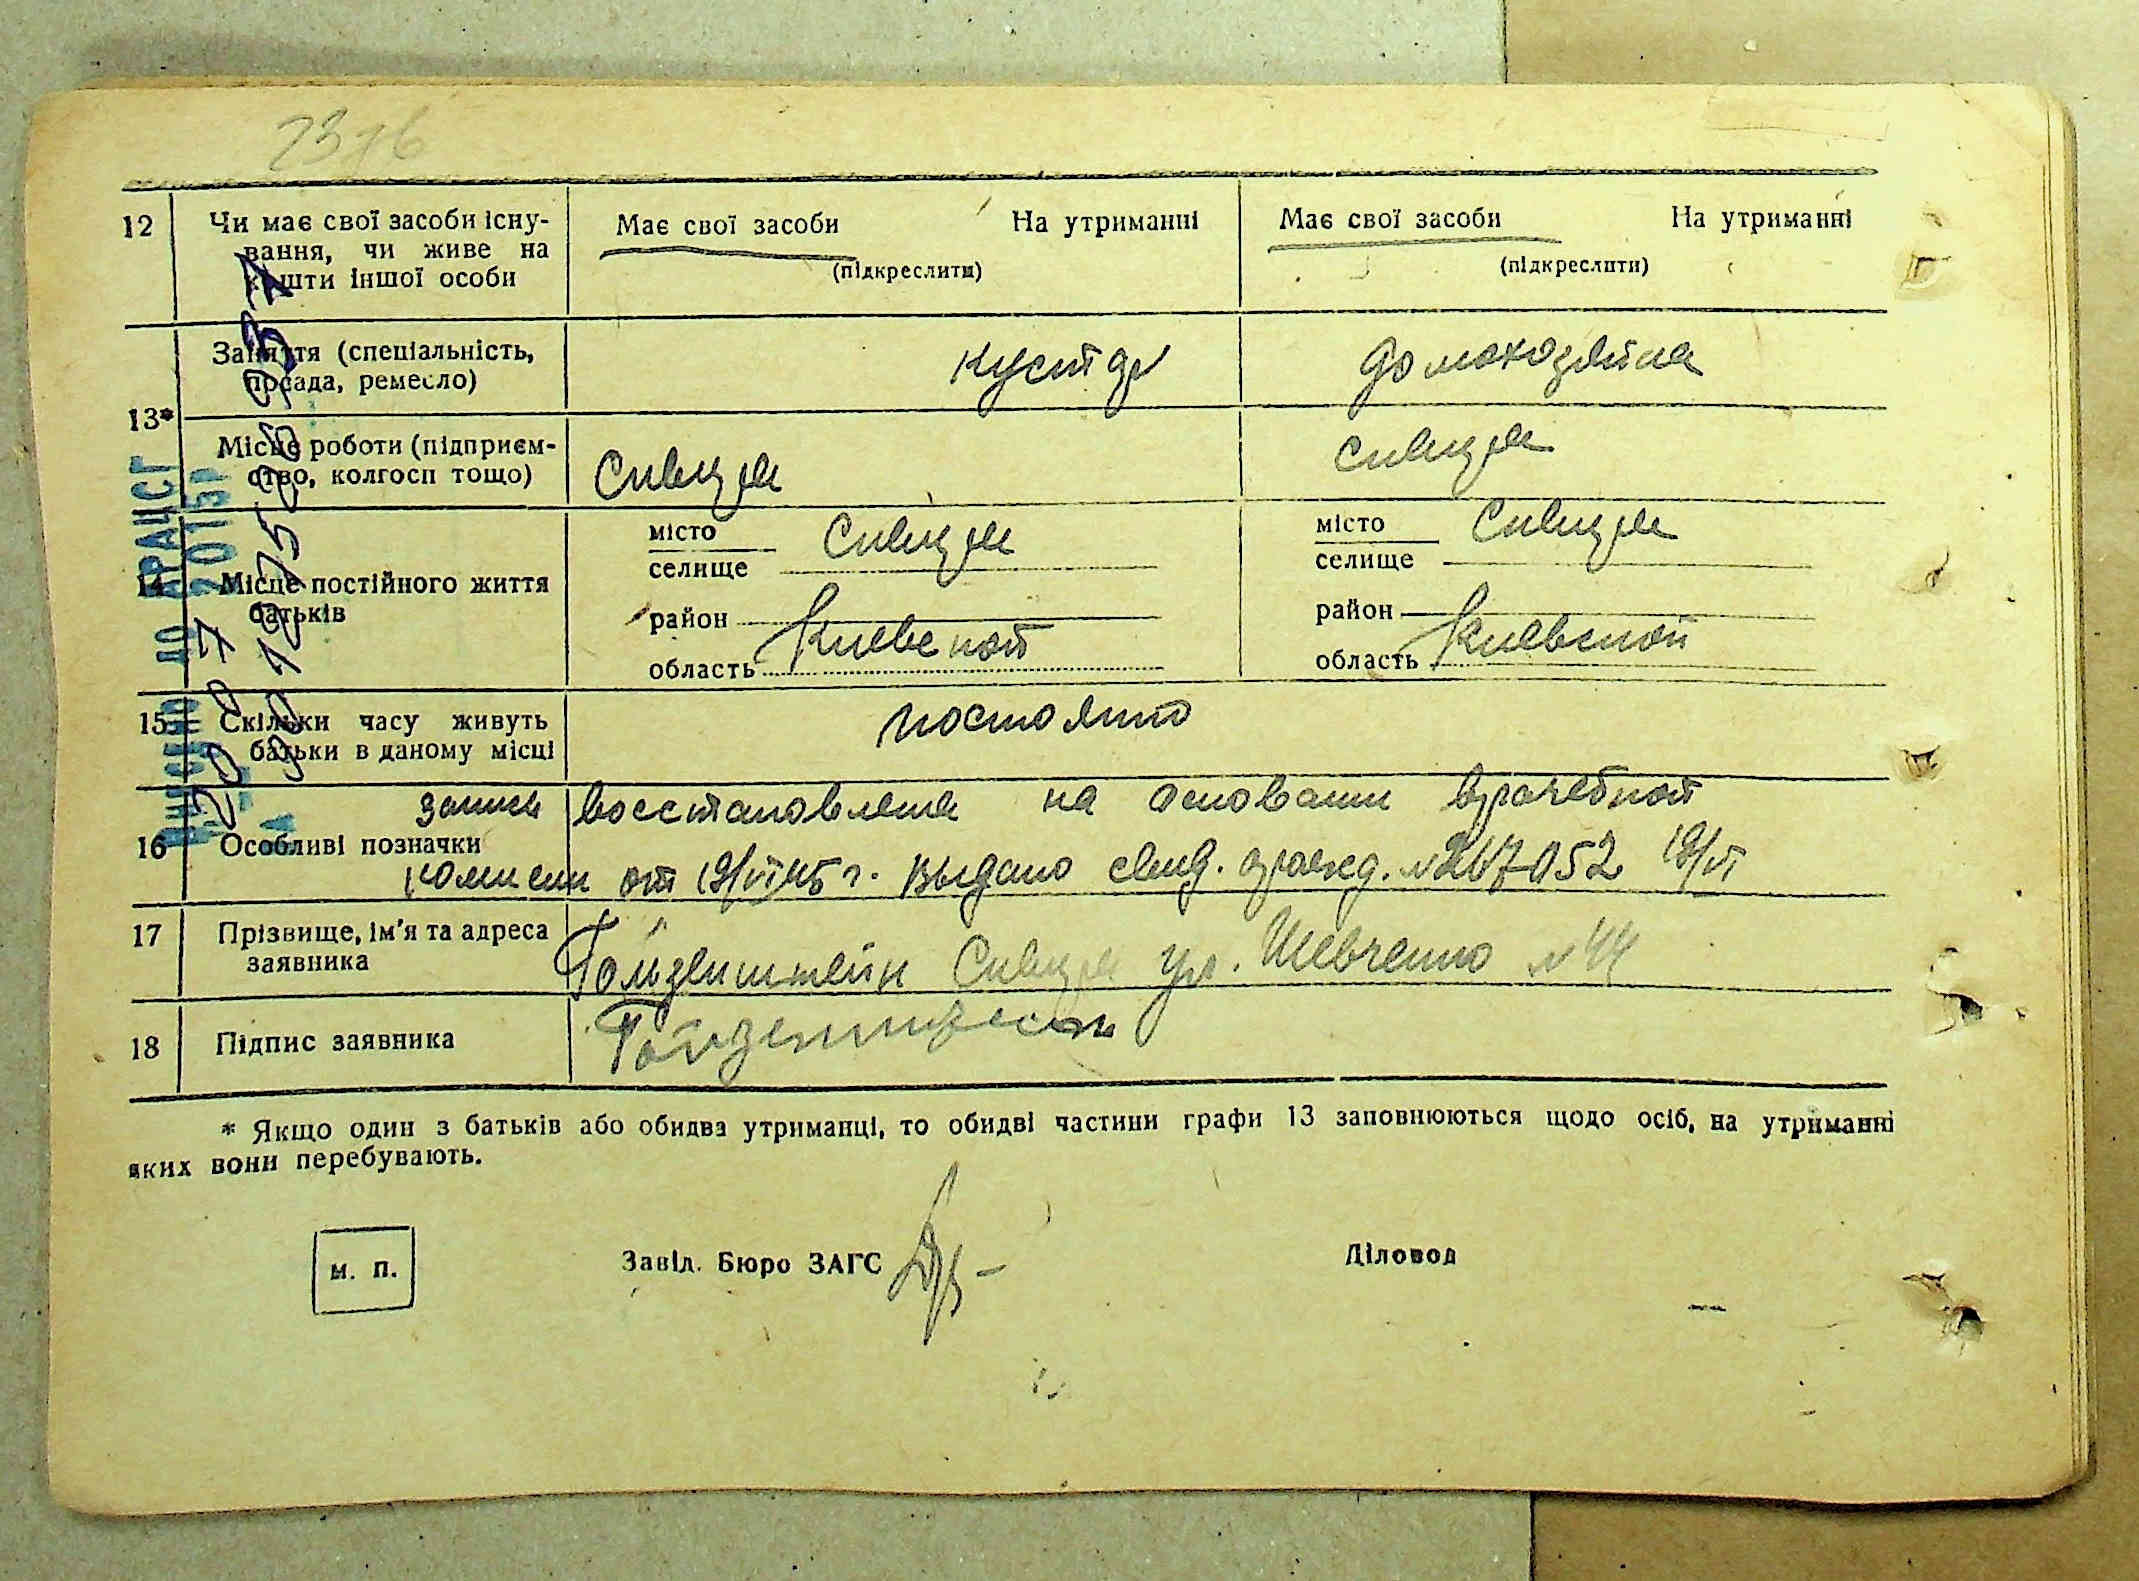 12 Чи має свої засоби існу-
вання, чи живе на
кошти іншої особи
Має свої засоби На утриманні
(підкреслити)
Має свої засоби На утриманні
(підкреслити)
13*
Заняття (спеціальність,
посада, ремесло)
кустар
домохозяйка
Місце роботи (підприєм-
ство, колгосп тощо)
Сквира
Сквира
14 Місце постійного життя
батьків
місто Сквира
селище
район
область Киевской
місто Сквира
селище
район
область Киевской
15 Скільки часу живуть
батьки в даному місці
постоянно
16 Особливі позначки
запись восстановлена на основании врачебной
комисии от 19/VI 45 г. Выдано свид. рожд. № 267052 19/VI
17 Прізвище, ім'я та адреса
заявника
Гольденштейн Сквира ул. Шевченко № 44
18 Підпис заявника
ВНЕСЕНО ДО ДРАЦСГ
2015р
* Якщо один з батьків або обидва утриманці, то обидві частини графи 13 заповнюються щодо осіб, на утриманні
яких вони перебувають.
м. п.
Завід. Бюро ЗАГС
Діловод